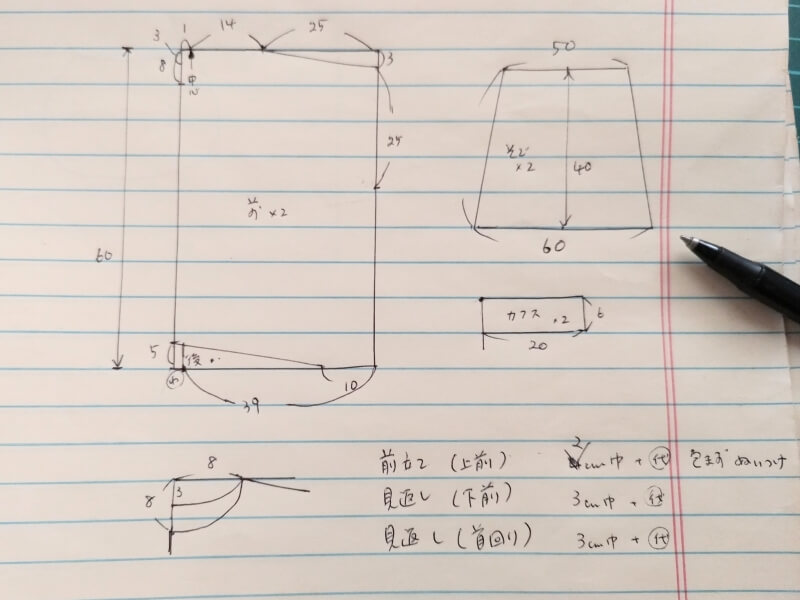 3 1 14 25
8 中心 3
25
前 × 2
60
5 後
わ 39 10
50
そで
× 2 40
60
カフス × 2 6
20
8
3
8
前カフ (上前) 2cm巾 + 代
見返し (下前) 3cm巾 + 代
見返し (首回り) 3cm巾 + 代